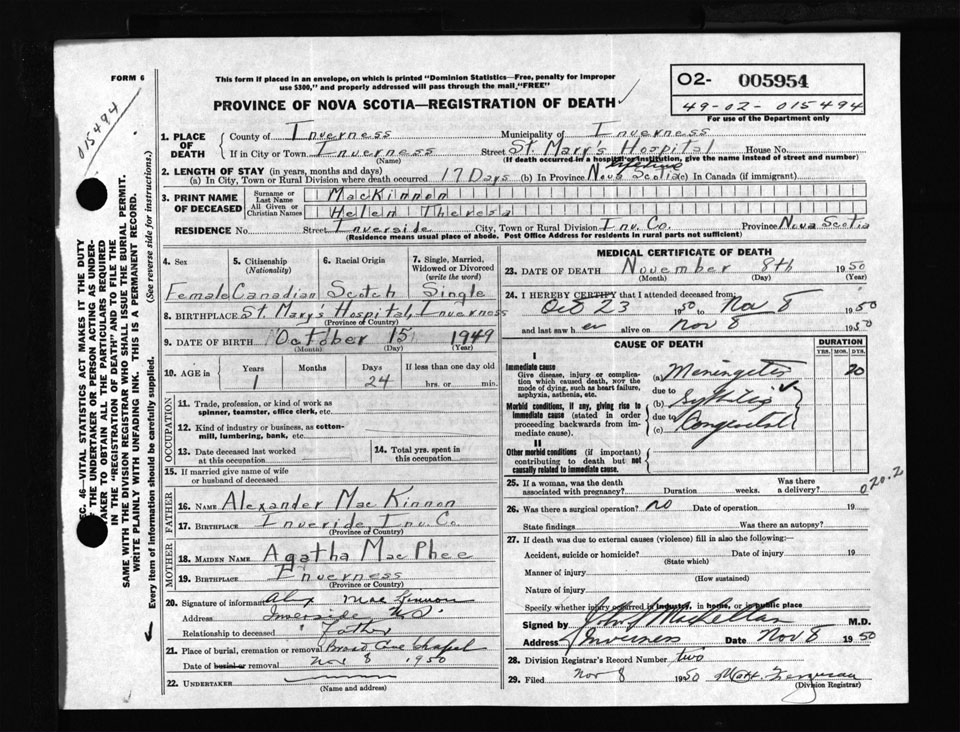 FORM 6
015494
This form if placed in an envelope, on which is printed "Dominion Statistics—Free, penalty for improper
use $300," and properly addressed will pass through the mail "FREE"
PROVINCE OF NOVA SCOTIA—REGISTRATION OF DEATH
02- 005954
49-02-015494
For use of the Department only
1. PLACE OF DEATH
County of Inverness Municipality of Inverness
If in City or Town Inverness Street St. Mary's Hospital House No.
(Name) (If death occurred in a hospital or institution, give the name instead of street and number)
2. LENGTH OF STAY (in years, months and days) lifetime
(a) In City, Town or Rural Division where death occurred 17 Days (b) In Province Nova Scotia (c) In Canada (if immigrant)
3. PRINT NAME OF DECEASED
Surname or Last Name MacKinnon
All Given or Christian Names Hellen Theresa
RESIDENCE No. Street Inverside City, Town or Rural Division Inv. Co. Province Nova Scotia
(Residence means usual place of abode. Post Office Address for residents in rural parts not sufficient)
4. Sex
5. Citizenship (Nationality)
6. Racial Origin
7. Single, Married, Widowed or Divorced (write the word)
Female Canadian Scotch Single
8. BIRTHPLACE St. Marys Hospital, Inverness
(Province or Country)
9. DATE OF BIRTH October 15 1949
(Month) (Day) (Year)
10. AGE in Years Months Days If less than one day old
1 24 hrs. or min.
OCCUPATION
11. Trade, profession, or kind of work as
spinner, teamster, office clerk, etc.
12. Kind of industry or business, as cotton-
mill, lumbering, bank, etc.
13. Date deceased last worked
at this occupation
14. Total yrs. spent in
this occupation
15. If married give name of wife
or husband of deceased
FATHER
16. NAME Alexander Mac Kinnon
17. BIRTHPLACE Inveride Inv. Co.
(Province or Country)
MOTHER
18. MAIDEN NAME Agatha MacPhee
19. BIRTHPLACE Inverness
(Province or Country)
20. Signature of informant Alex Mac Kinnon
Address Inverside N.S.
Relationship to deceased Father
21. Place of burial, cremation or removal Broad Cove Chapel
Date of burial or removal Nov 8 1950
22. UNDERTAKER
(Name and address)
MEDICAL CERTIFICATE OF DEATH
23. DATE OF DEATH November 8th 1950
(Month) (Day) (Year)
24. I HEREBY CERTIFY that I attended deceased from:
Oct 23 1950 to Nov 8 1950
and last saw her alive on Nov 8 1950
CAUSE OF DEATH
DURATION
YRS. MOS. DYS.
I
Immediate cause
Give disease, injury or complica-
tion which caused death, not the
mode of dying, such as heart failure,
asphyxia, asthenia, etc.
(a) Meningetis 20
due to
Morbid conditions, if any, giving rise to
immediate cause (stated in order
proceeding backwards from im-
mediate cause).
(b) Syphilis
due to
(c) Congenital
II
Other morbid conditions (if important)
contributing to death but not
causally related to immediate cause.
25. If a woman, was the death
associated with pregnancy? Duration weeks. Was there
a delivery?
020.2
26. Was there a surgical operation? no Date of operation 19
State findings Was there an autopsy?
27. If death was due to external causes (violence) fill in also the following:
Accident, suicide or homicide? Date of injury 19
(State which)
Manner of injury
(How sustained)
Nature of injury
Specify whether injury occurred in industry, in home, or in public place
Signed by John J MacLellan M.D.
Address Inverness Date Nov 8 1950
28. Division Registrar's Record Number two
29. Filed Nov 8 1950
(Division Registrar)
SEC. 46—VITAL STATISTICS ACT MAKES IT THE DUTY
OF THE UNDERTAKER OR PERSON ACTING AS UNDER-
TAKER TO OBTAIN ALL THE PARTICULARS REQUIRED
IN THE "REGISTRATION OF DEATH" AND TO FILE THE
SAME WITH THE DIVISION REGISTRAR WHO SHALL ISSUE THE BURIAL PERMIT.
WRITE PLAINLY WITH UNFADING INK. THIS IS A PERMANENT RECORD.
Every item of information should be carefully supplied. (See reverse side for instructions.)